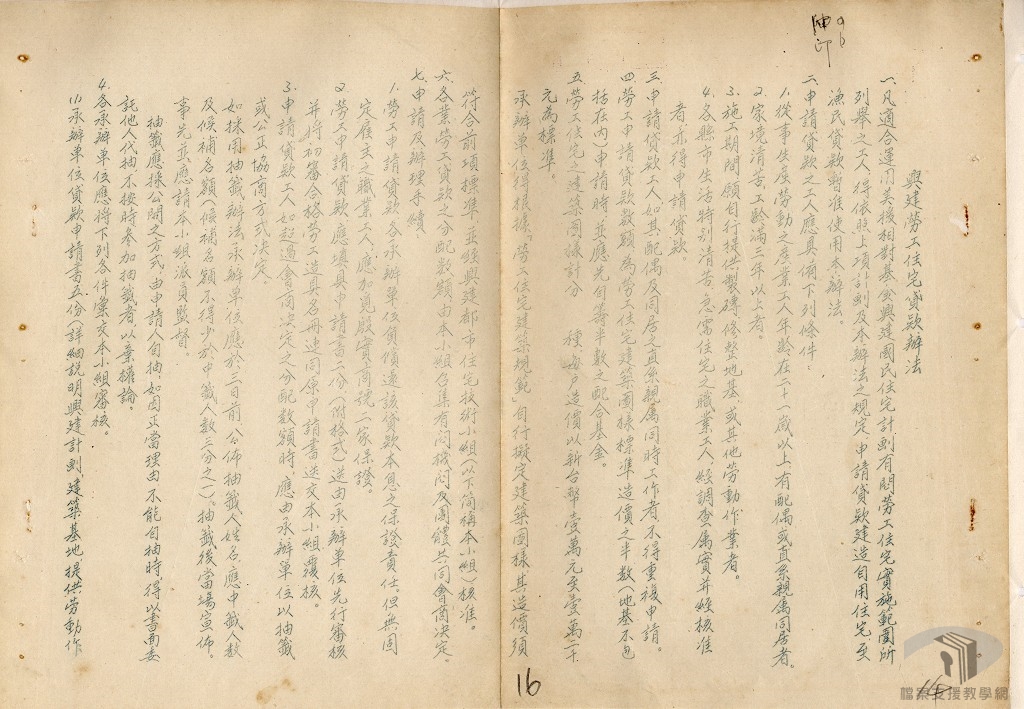 興建勞工住宅貸款辦法
一、凡適合運用美援相對基金興建國民住宅計劃有關勞工住宅實施範圍所
列舉之工人,得依照上項計劃及本辦法之規定,申請貸款建造自用住宅至
漁民貸款暫准使用本辦法。
二、申請貸款之工人應具備下列條件:
1.從事生產勞動之產業工人年齡在二十一歲以上有配偶或直系親屬同居者。
2.家境清苦工齡滿三年以上者。
3.施工期間願自行提供製磚修整地基,或其他勞動作業者。
4.各縣市生活特別清苦急需住宅之職業工人,經調查屬實并經核准
者亦得申請貸款。
三、申請貸款工人如其配偶及同居之直系親屬同時工作者,不得重複申請。
四、勞工申請貸款數額,為勞工住宅建築圖樣標準造價之半數(地基不包
括在內)申請時,並應先自籌半數之配合基金。
五、勞工住宅之建築圖樣計分　種,每戶造價以新台幣壹萬元至壹萬二千
元為標準。
承辦單位得根據「勞工住宅建築規範」自行擬定建築圖樣其造價須
符合前項標準,並經興建都市住宅技術小組(以下簡稱本小組)核准。
六、各業勞工貸款之分配數額,由本小組召集有關機關及團體共同會商決定。
七、申請及辦理手續
1.勞工申請貸款,各承辦單位負償還該貸款本息之保證責任,但無固
定雇主之職業工人,應加覓殷實商號二家保證。
2.勞工申請貸款,應填具申請書二份(附格式)逕由承辦單位先行審核
并將初審合格勞工造具名冊連同原申請書送交本小組覆核。
3.申請貸款工人如超過會商決定之分配數額時,應由承辦單位以抽籤
或公正協商方式決定。
如採用抽籤辦法,承辦單位應於三日前,公佈抽籤人姓名,應中籤人數
及候補名額(候補名額不得少於中籤人數三分之一),抽籤後當場宣佈。
事先並應請本小組派員監督。
抽籤應採公開之方式,由申請人自抽,如因正當理由不能自抽時,得以書面委
託他人代抽,不按時參加抽籤者,以棄權論。
4.各承辦單位應將下列各件彙交本小組審核。
(1)承辦單位貸款申請書五份(詳細說明興建計劃,建築基地,提供勞動作
16
檔案支援教學網